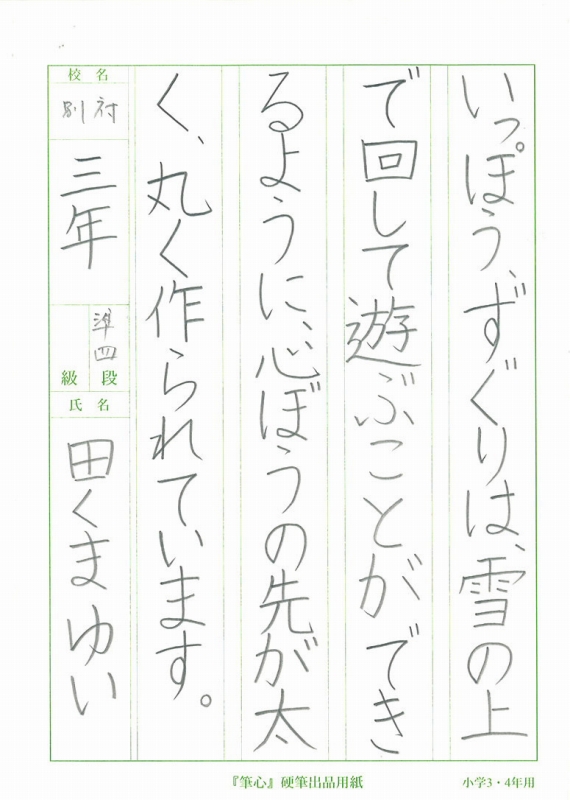 いっぽう、ずぐりは、雪の上
で回して遊ぶことができ
るように、心ぼうの先が太
く、丸く作られています。
校名
別府
三年
準四
級 段
氏名
田くまゆい
『筆心』硬筆出品用紙
小学3・4年用